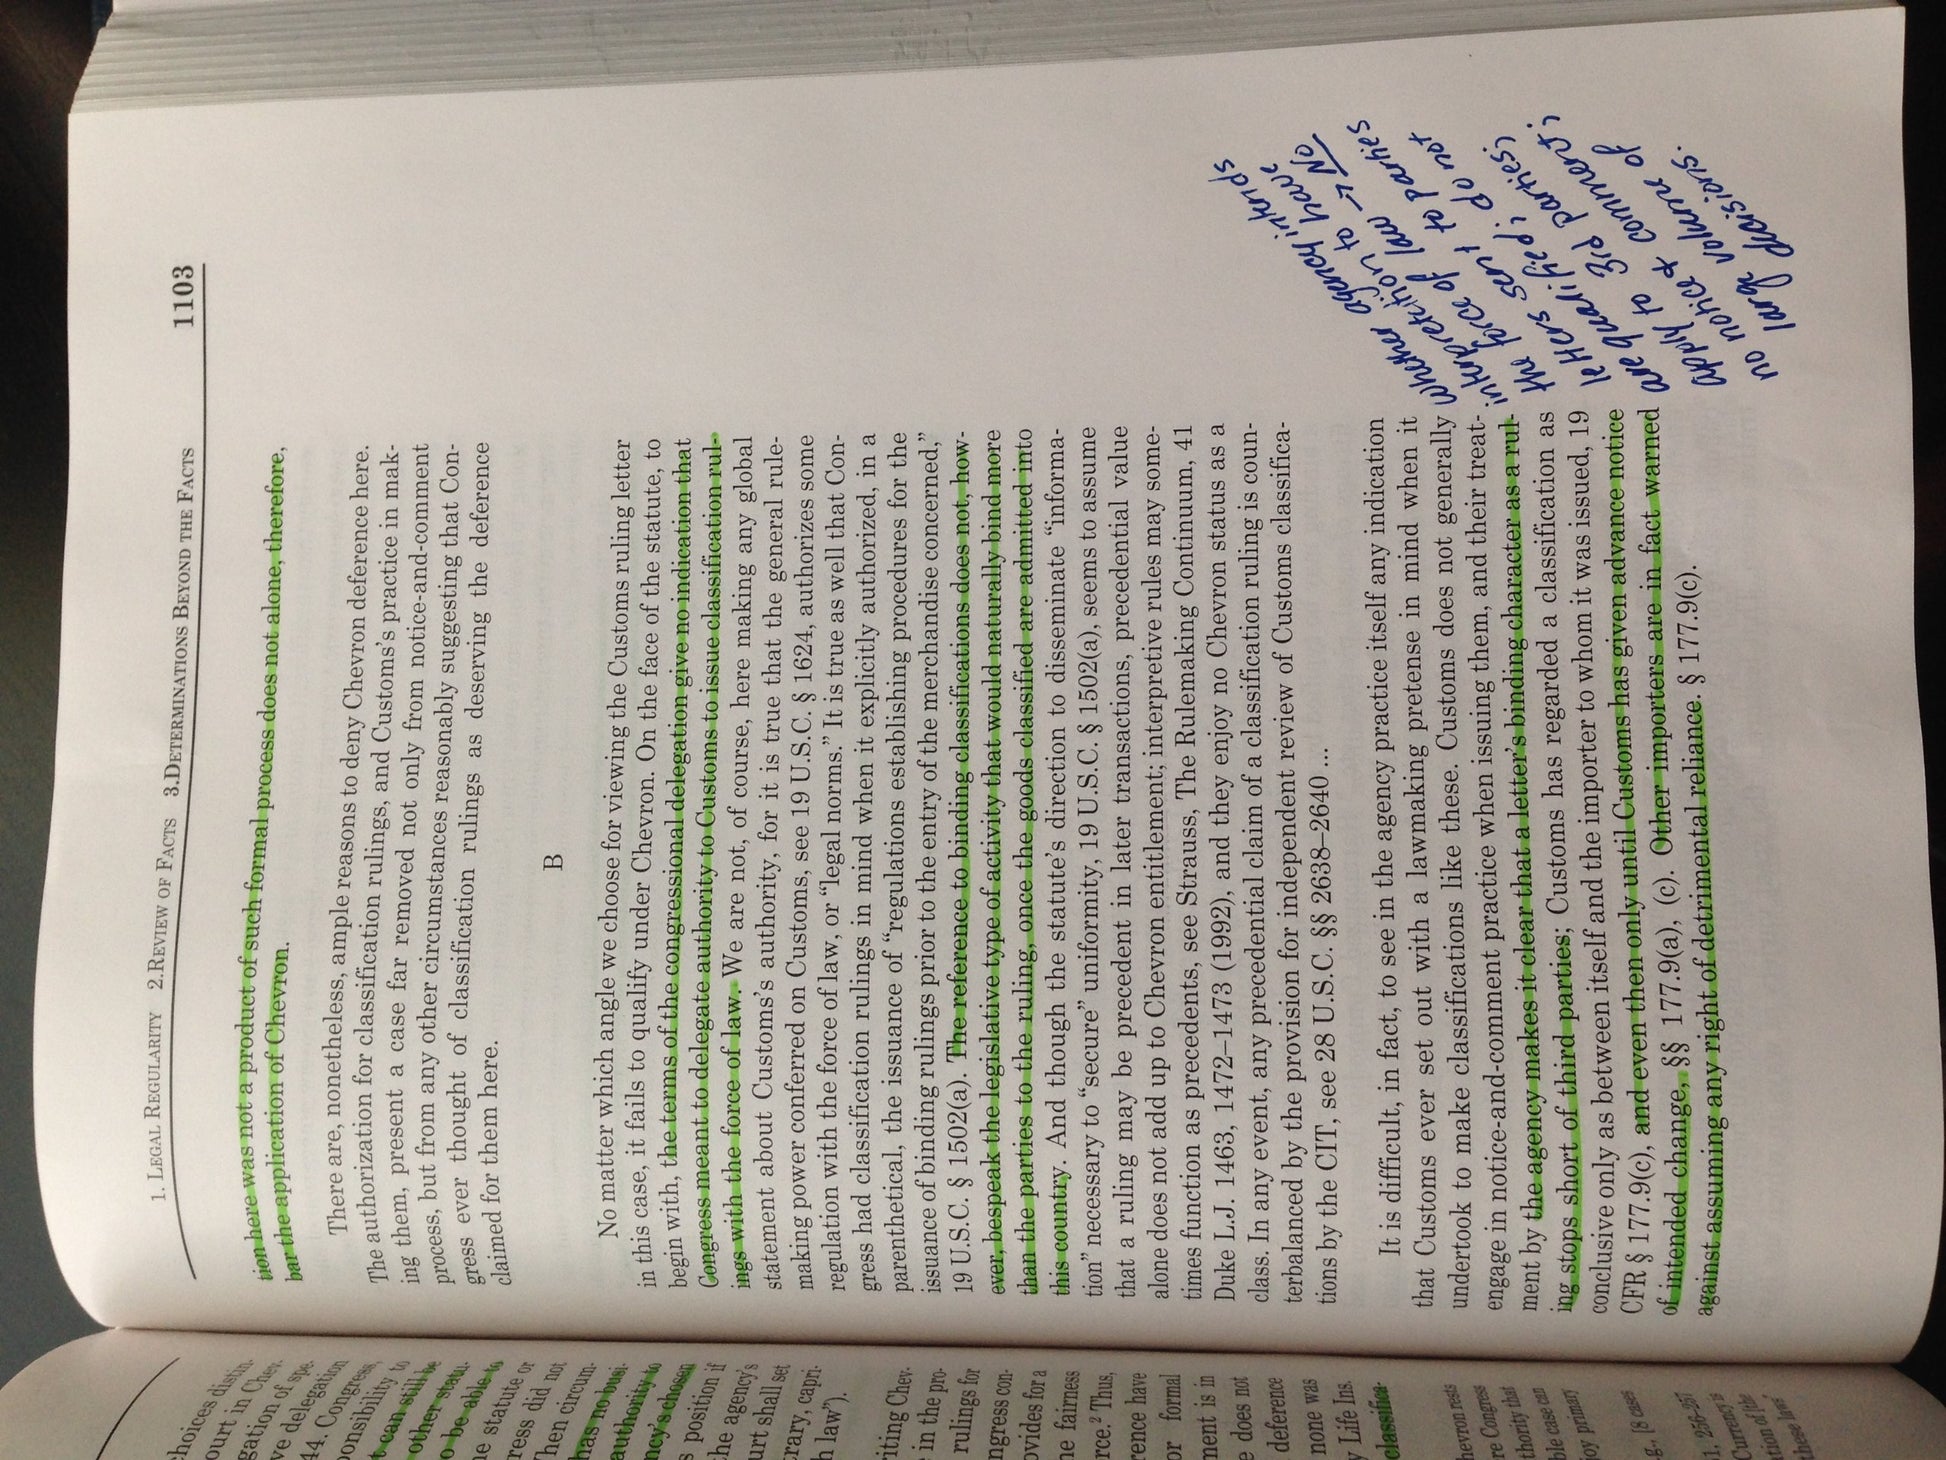 1. LEGAL REGULARITY 2.REVIEW OF FACTS 3.DETERMINATIONS BEYOND THE FACTS 1103
tion here was not a product of such formal process does not alone, therefore,
bar the application of Chevron.
There are, nonetheless, ample reasons to deny Chevron deference here.
The authorization for classification rulings, and Customs's practice in mak-
ing them, present a case far removed not only from notice-and-comment
process, but from any other circumstances reasonably suggesting that Con-
gress ever thought of classification rulings as deserving the deference
claimed for them here.
B
No matter which angle we choose for viewing the Customs ruling letter
in this case, it fails to qualify under Chevron. On the face of the statute, to
begin with, the terms of the congressional delegation give no indication that
Congress meant to delegate authority to Customs to issue classification rul-
ings with the force of law. We are not, of course, here making any global
statement about Customs's authority, for it is true that the general rule-
making power conferred on Customs, see 19 U.S.C. § 1624, authorizes some
regulation with the force of law, or “legal norms.” It is true as well that Con-
gress had classification rulings in mind when it explicitly authorized, in a
parenthetical, the issuance of “regulations establishing procedures for the
issuance of binding rulings prior to the entry of the merchandise concerned,”
19 U.S.C. § 1502(a). The reference to binding classifications does not, how-
ever, bespeak the legislative type of activity that would naturally bind more
than the parties to the ruling, once the goods classified are admitted into
this country. And though the statute's direction to disseminate “informa-
tion” necessary to “secure” uniformity, 19 U.S.C. § 1502(a), seems to assume
that a ruling may be precedent in later transactions, precedential value
alone does not add up to Chevron entitlement; interpretive rules may some-
times function as precedents, see Strauss, The Rulemaking Continuum, 41
Duke L.J. 1463, 1472–1473 (1992), and they enjoy no Chevron status as a
class. In any event, any precedential claim of a classification ruling is coun-
terbalanced by the provision for independent review of Customs classifica-
tions by the CIT, see 28 U.S.C. §§ 2638–2640 ...
It is difficult, in fact, to see in the agency practice itself any indication
that Customs ever set out with a lawmaking pretense in mind when it
undertook to make classifications like these. Customs does not generally
engage in notice-and-comment practice when issuing them, and their treat-
ment by the agency makes it clear that a letter's binding character as a rul-
ing stops short of third parties; Customs has regarded a classification as
conclusive only as between itself and the importer to whom it was issued, 19
CFR § 177.9(c), and even then only until Customs has given advance notice
of intended change, §§ 177.9(a), (c). Other importers are in fact warned
against assuming any right of detrimental reliance. § 177.9(c).
Whether agency intends
interpretation to have
the force of law → No
letters sent to parties
are qualified; do not
apply to 3rd parties;
no notice & comment;
no large volume of
decisions.
choices distin-
ourt in Chev-
gation of spe-
ve delegation
44. Congress,
ponsibility to
t can still be
other statu-
o be able to
he statute or
ress did not
Then circum-
has no busi-
authority to
ncy's chosen
s position if
the agency's
urt shall set
trary, capri-
h law”).
riting Chev-
in the pro-
rulings for
ngress con-
ovides for a
ne fairness
rce.2 Thus,
rence have
or formal
ment is in
e does not
deference
none was
y Life Ins.
classifica-
hevron rests
re Congress
thority that
ble case can
joy primary
g., [8 cases
1, 256–257
Currency is
tion of [the
these laws'